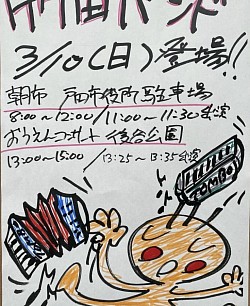 3/10(日)登場!!
朝市 戸田市役所駐車場
8:00~12:00/11:00~11:30出演
おうえんコンサート 後谷公園
13:00~15:00/13:25~13:35出演
TOMBO